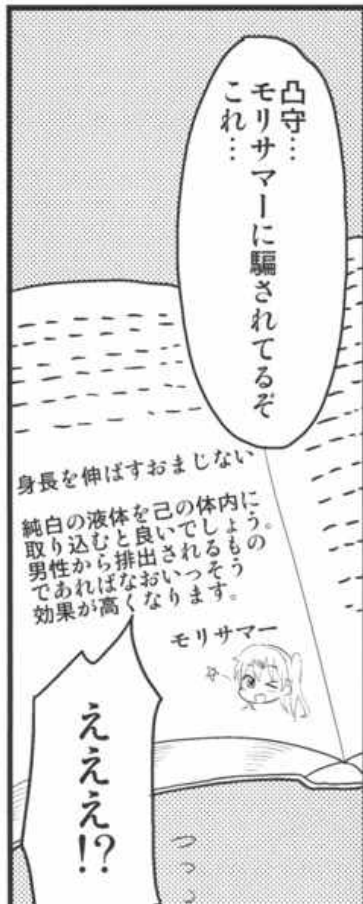 凸守…
モリサマーに騙されてるぞ
これ…
身長を伸ばすおまじない
純白の液体を己の体内に
取り込むと良いでしょう。
男性から排出されるもの
であればなおいっそう
効果が高くなります。
モリサマー
えええ!?